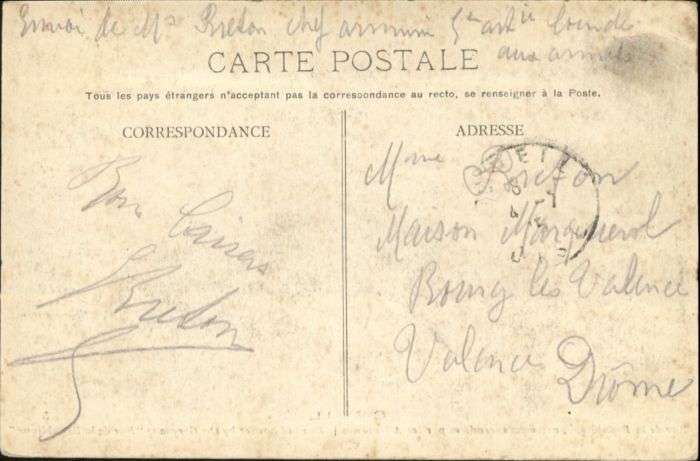 Envoi de Mr Breton chef armurier 5e artie lourde
aux armées
CARTE POSTALE
Tous les pays étrangers n'acceptant pas la correspondance au recto, se renseigner à la Poste.
CORRESPONDANCE
Bons baisers
Breton
ADRESSE
Mme Breton
Maison
Bourg les Valence
Valence Drôme